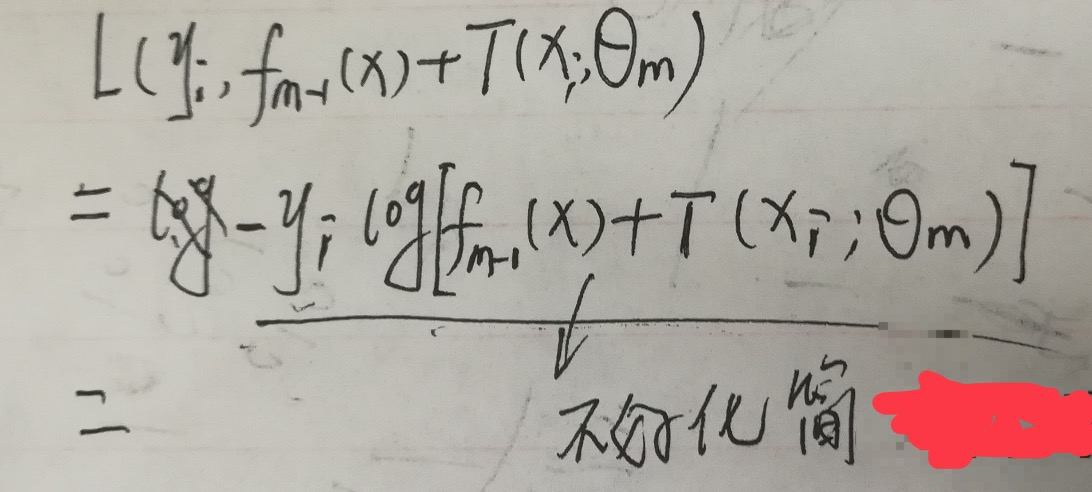 L(y_i, f_{m-1}(x)+T(x_i;θ_m)
= -y_i log[f_{m-1}(x)+T(x_i;θ_m)]
=
不好化简